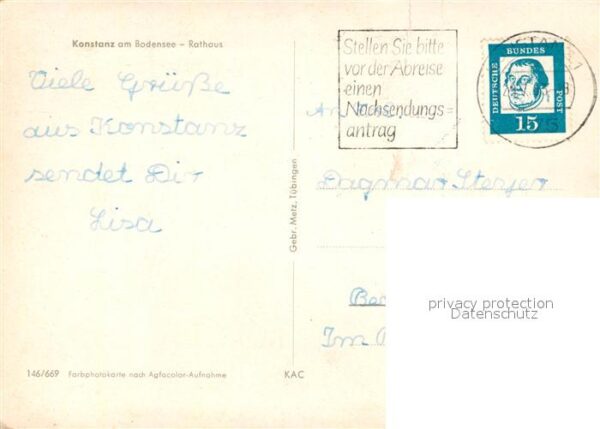 Konstanz am Bodensee – Rathaus
Viele Grüße
aus Konstanz
sendet Dir
Lisa
146/669 Farbphotokarte nach Agfacolor-Aufnahme
Gebr. Metz, Tübingen
KAC
Stellen Sie bitte
vor der Abreise
einen
Nachsendungs=
antrag
DEUTSCHE
BUNDES
POST
15
An
Dagmar
Im
privacy protection
Datenschutz